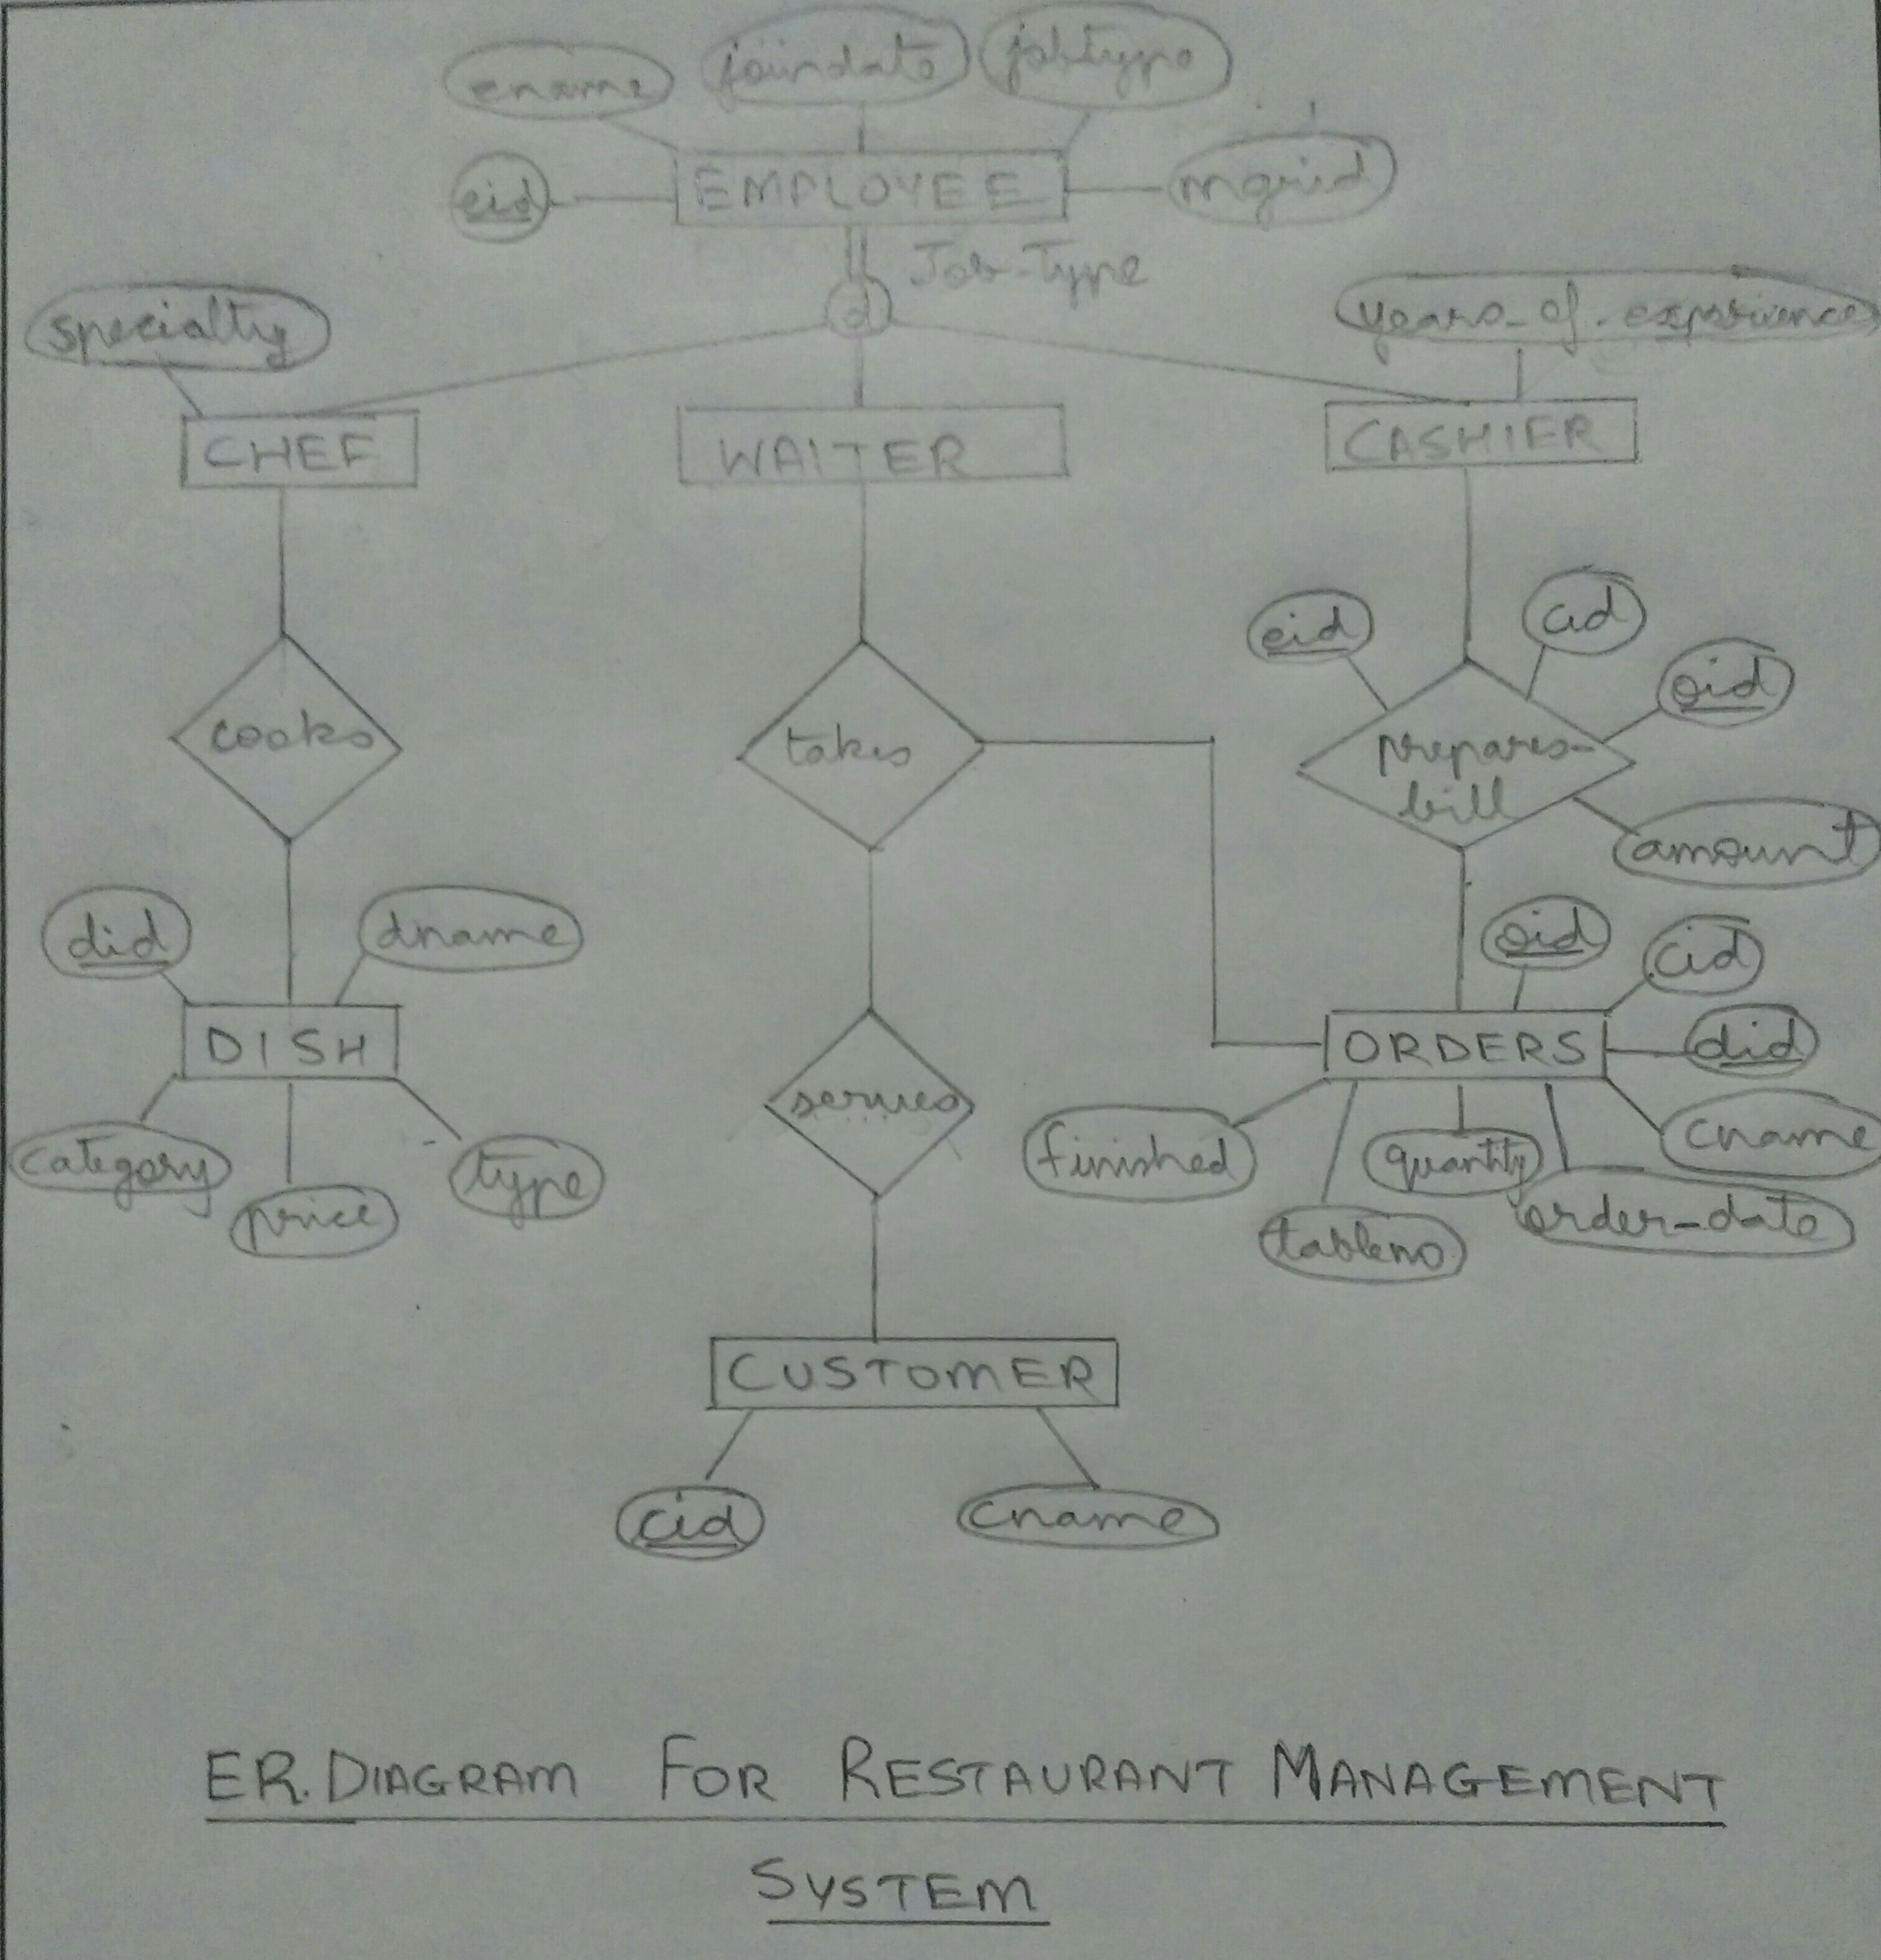 ename
joindate
jobtype
eid
EMPLOYEE
mgrid
Job-Type
d
specialty
years_of_experience
CHEF
WAITER
CASHIER
eid
cid
oid
cooks
takes
prepares-
bill
amount
did
dname
oid
cid
DISH
ORDERS
did
category
price
type
serves
finished
quantity
cname
tableno
order-date
CUSTOMER
cid
cname
ER.DIAGRAM FOR RESTAURANT MANAGEMENT
SYSTEM